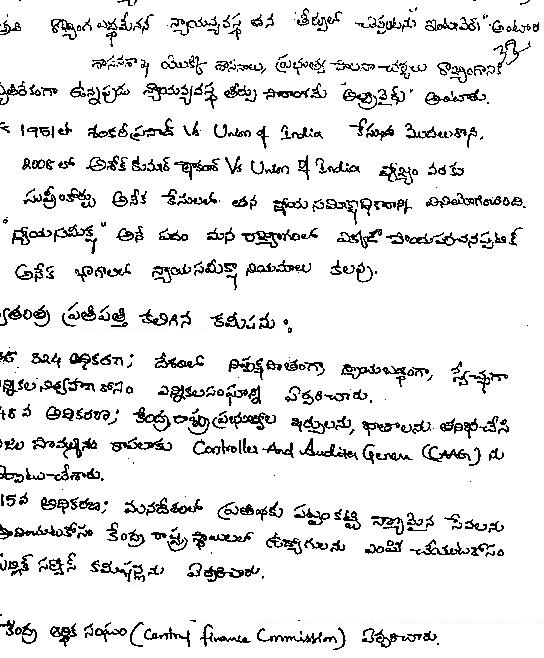 రాజ్యాంగ బద్ధమేనని న్యాయవ్యవస్థ తన తీర్పులో చెప్పటంను "ఇంట్రావైరస్" అంటారు
33
శాసనశాఖ యొక్క శాసనాలు, ప్రభుత్వ పాలనా చర్యలు రాజ్యాంగానికి
వ్యతిరేకంగా ఉన్నప్పుడు న్యాయవ్యవస్థ తీర్పు సారాంశమే "అల్ట్రావైరస్" అంటారు.
1951లో శంకరీప్రసాద్ Vs Union of India కేసుతో మొదలుకొని,
2008లో అశోక్ కుమార్ ఠాకూర్ Vs Union of India వ్యాజ్యం వరకు
సుప్రీంకోర్టు అనేక కేసులలో తన న్యాయ సమీక్షాధికారాన్ని వినియోగించింది.
"న్యాయసమీక్ష" అనే పదం మన రాజ్యాంగంలో ఎక్కడా పొందుపరచనప్పటికి
అనేక భాగాలలో న్యాయసమీక్షా నియమాలు కలవు.
స్వతంత్ర ప్రతిపత్తి కలిగిన కమీషను :
324 అధికరణ; దేశంలో నిష్పక్షపాతంగా, న్యాయబద్ధంగా, స్వేచ్ఛగా
ఎన్నికల నిర్వహణ కోసం ఎన్నికలసంఘాన్ని ఏర్పరిచారు.
148 వ అధికరణ; కేంద్ర రాష్ట్ర ప్రభుత్వాల ఖర్చులను, ఖాతాలను తనిఖీ చేసి
ప్రజల సొమ్మును కాపలాకు Controller And Auditer General (CAAG) ను
ఏర్పాటు చేశారు.
315 వ అధికరణ; మనదేశంలో ప్రతిభకు పట్టంకట్టి నాణ్యమైన సేవలను
కేంద్ర రాష్ట్ర స్థాయిలలో ఉద్యోగులను ఎంపిక చేయుటకోసం
పబ్లిక్ సర్వీస్ కమీషన్లను ఏర్పరిచారు.
కేంద్ర ఆర్థిక సంఘం (Central finance Commission) ఏర్పరిచారు.